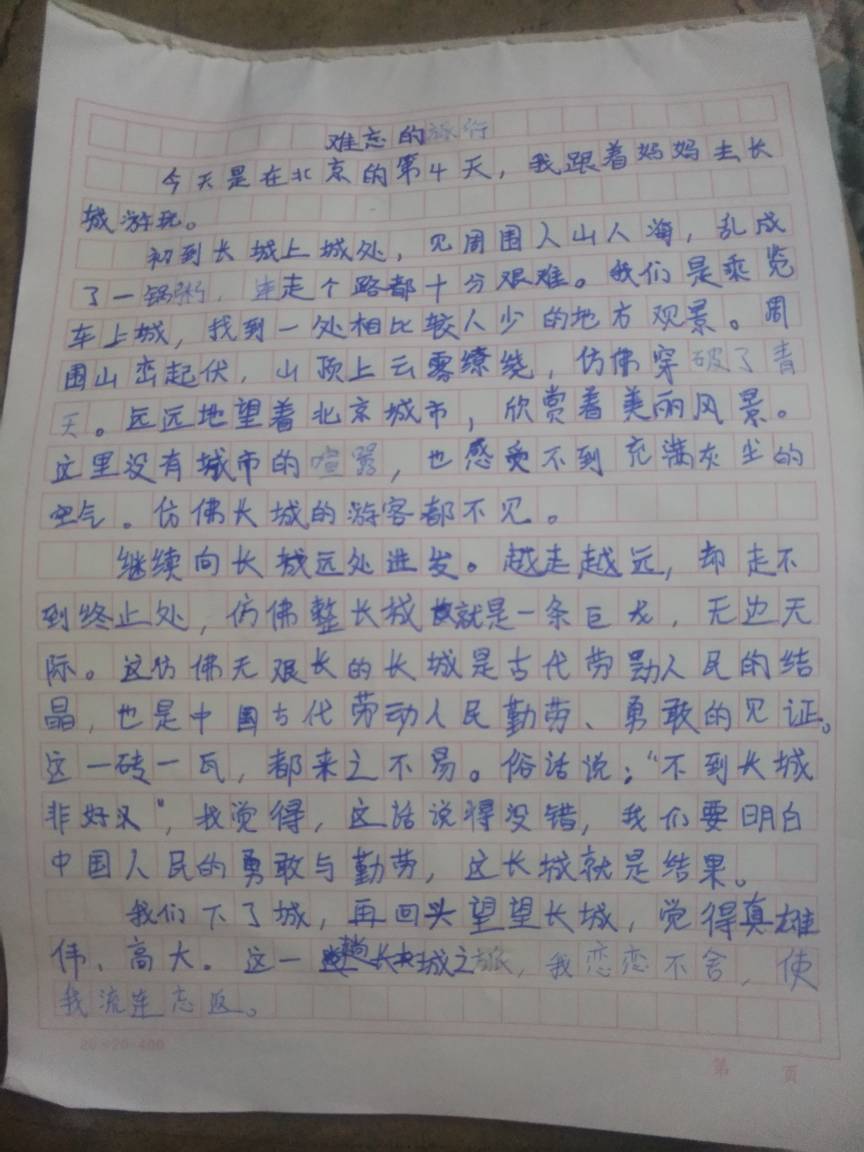 难忘的旅行
今天是在北京的第4天，我跟着妈妈去长
城游玩。
初到长城上城处，见周围人山人海，乱成
了一锅粥，连走个路都十分艰难。我们是乘览
车上城，找到一处相比较人少的地方观景。周
围山峦起伏，山顶上云雾缭绕，仿佛穿破了青
天。远远地望着北京城市，欣赏着美丽风景。
这里没有城市的喧嚣，也感受不到充满灰尘的
空气。仿佛长城的游客都不见。
继续向长城远处进发。越走越远，却走不
到终止处，仿佛整长城就是一条巨龙，无边天
际。这仿佛无艰长的长城是古代劳动人民的结
晶，也是中国古代劳动人民勤劳、勇敢的见证。
这一砖一瓦，都来之不易。俗话说：“不到长城
非好汉”，我觉得，这话说得没错，我们要明白
中国人民的勇敢与勤劳，这长城就是结果。
我们下了城，再回头望望长城，觉得真雄
伟、高大。这一趟长城之旅，我恋恋不舍，使
我流连志返。
20×20=400
第 页